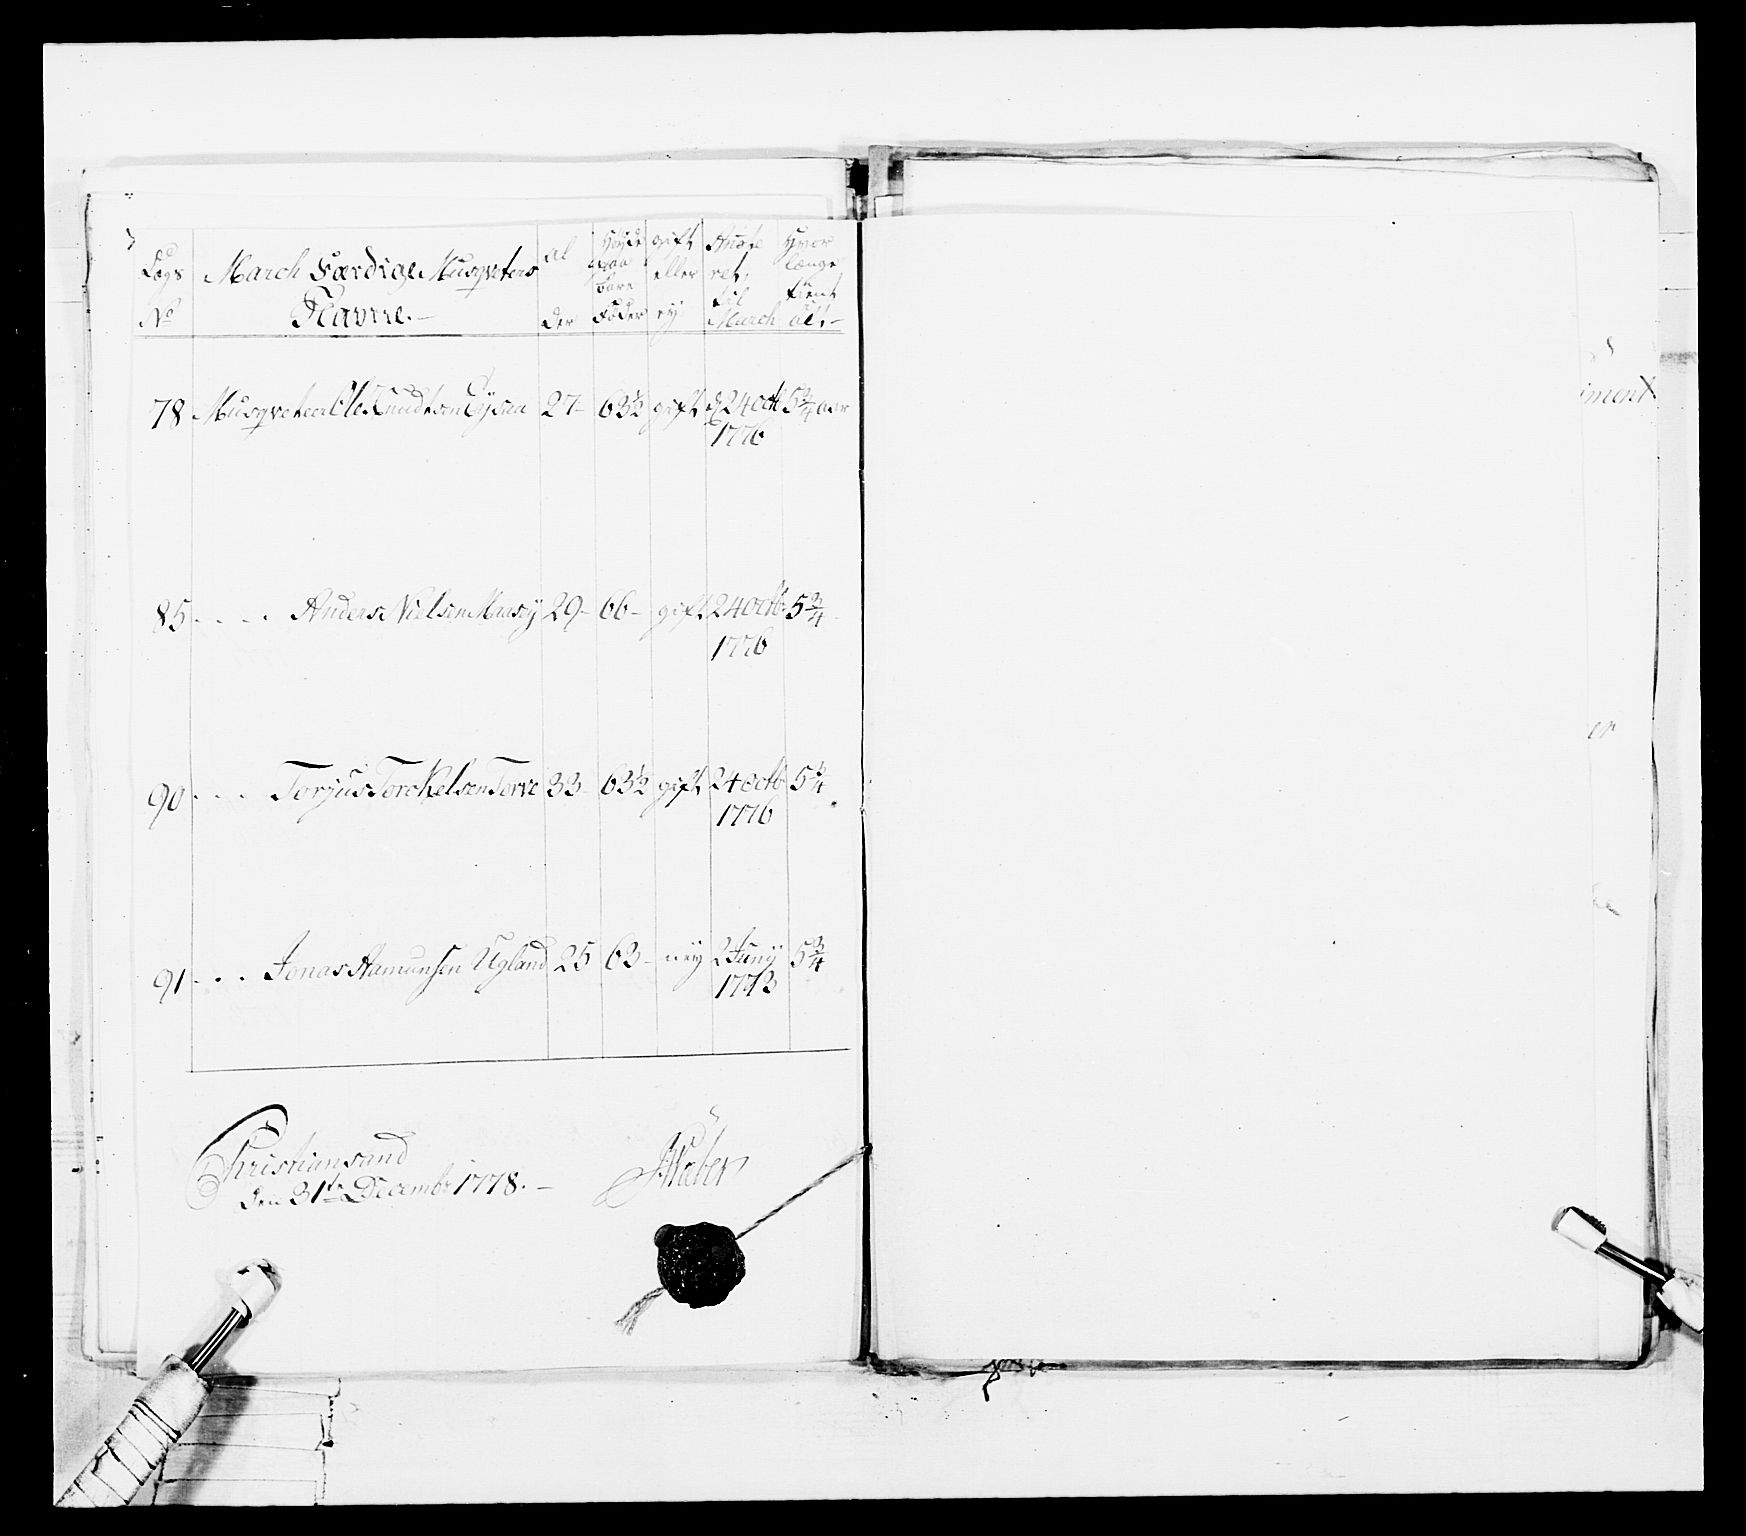 Lægs No | March Færdige Musqveters Navne.— | al der | Høyde paa bare Føder | gift eller ey | Anføret til March | Hvor længe tient alt.—
78 Musqveteer Ole Knudtsen Eysaa 27– 63½ gift d 24 octb 1776 5¾ aar
85 . . . . Anders Nielsen Maasøy 29– 66– gift 24 octb 1776 5¾
90 . . . Torjus Torckelsen Torve 33– 63½ gift 24 octb 1776 5¾
91 . . . Jonas Aamunsen Ugland 25 63– ney 2 Juny 1773 5¾
Christiansand
den 31te Decembr 1778.—
iment
er